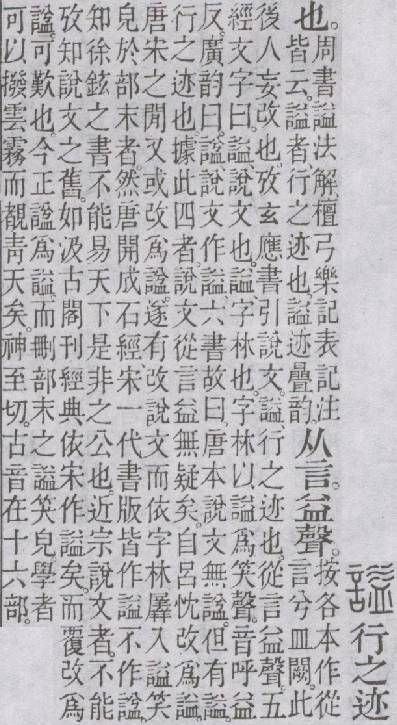 謚 行之迹
也。
周書謚法解、檀弓樂記表記注
皆云。謚者、行之迹也。謚迹疊韵。
从言。益聲。
按各本作從
言兮皿闕。此
後人妄改也。攷玄應書引說文。謚、行之迹也。從言益聲。五
經文字曰。謚、說文也。諡、字林也。字林以謚爲笑聲。音呼益
反。廣韵曰。諡、說文作謚。六書故曰。唐本說文無諡。但有謚。
行之迹也。據此四者。說文從言益無疑矣。自呂忱改爲諡。
唐宋之閒又或改爲諡。遂有改說文而依字林羼入謚笑
皃於部末者。然唐開成石經宋一代書版皆作謚不作諡。
知徐鉉之書不能易天下是非之公也。近宗說文者不能
攷知說文之舊。如汲古閣刊經典依宋作謚矣。而覆改爲
諡。可歎也。今正諡爲謚。而刪部末之謚笑皃。學者
可以撥雲霧而覩靑天矣。神至切。古音在十六部。